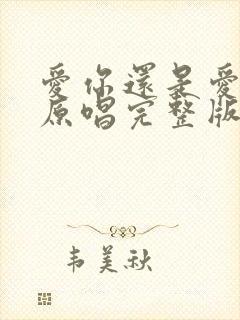 愛你還是愛
原唱完整版
韦美秋